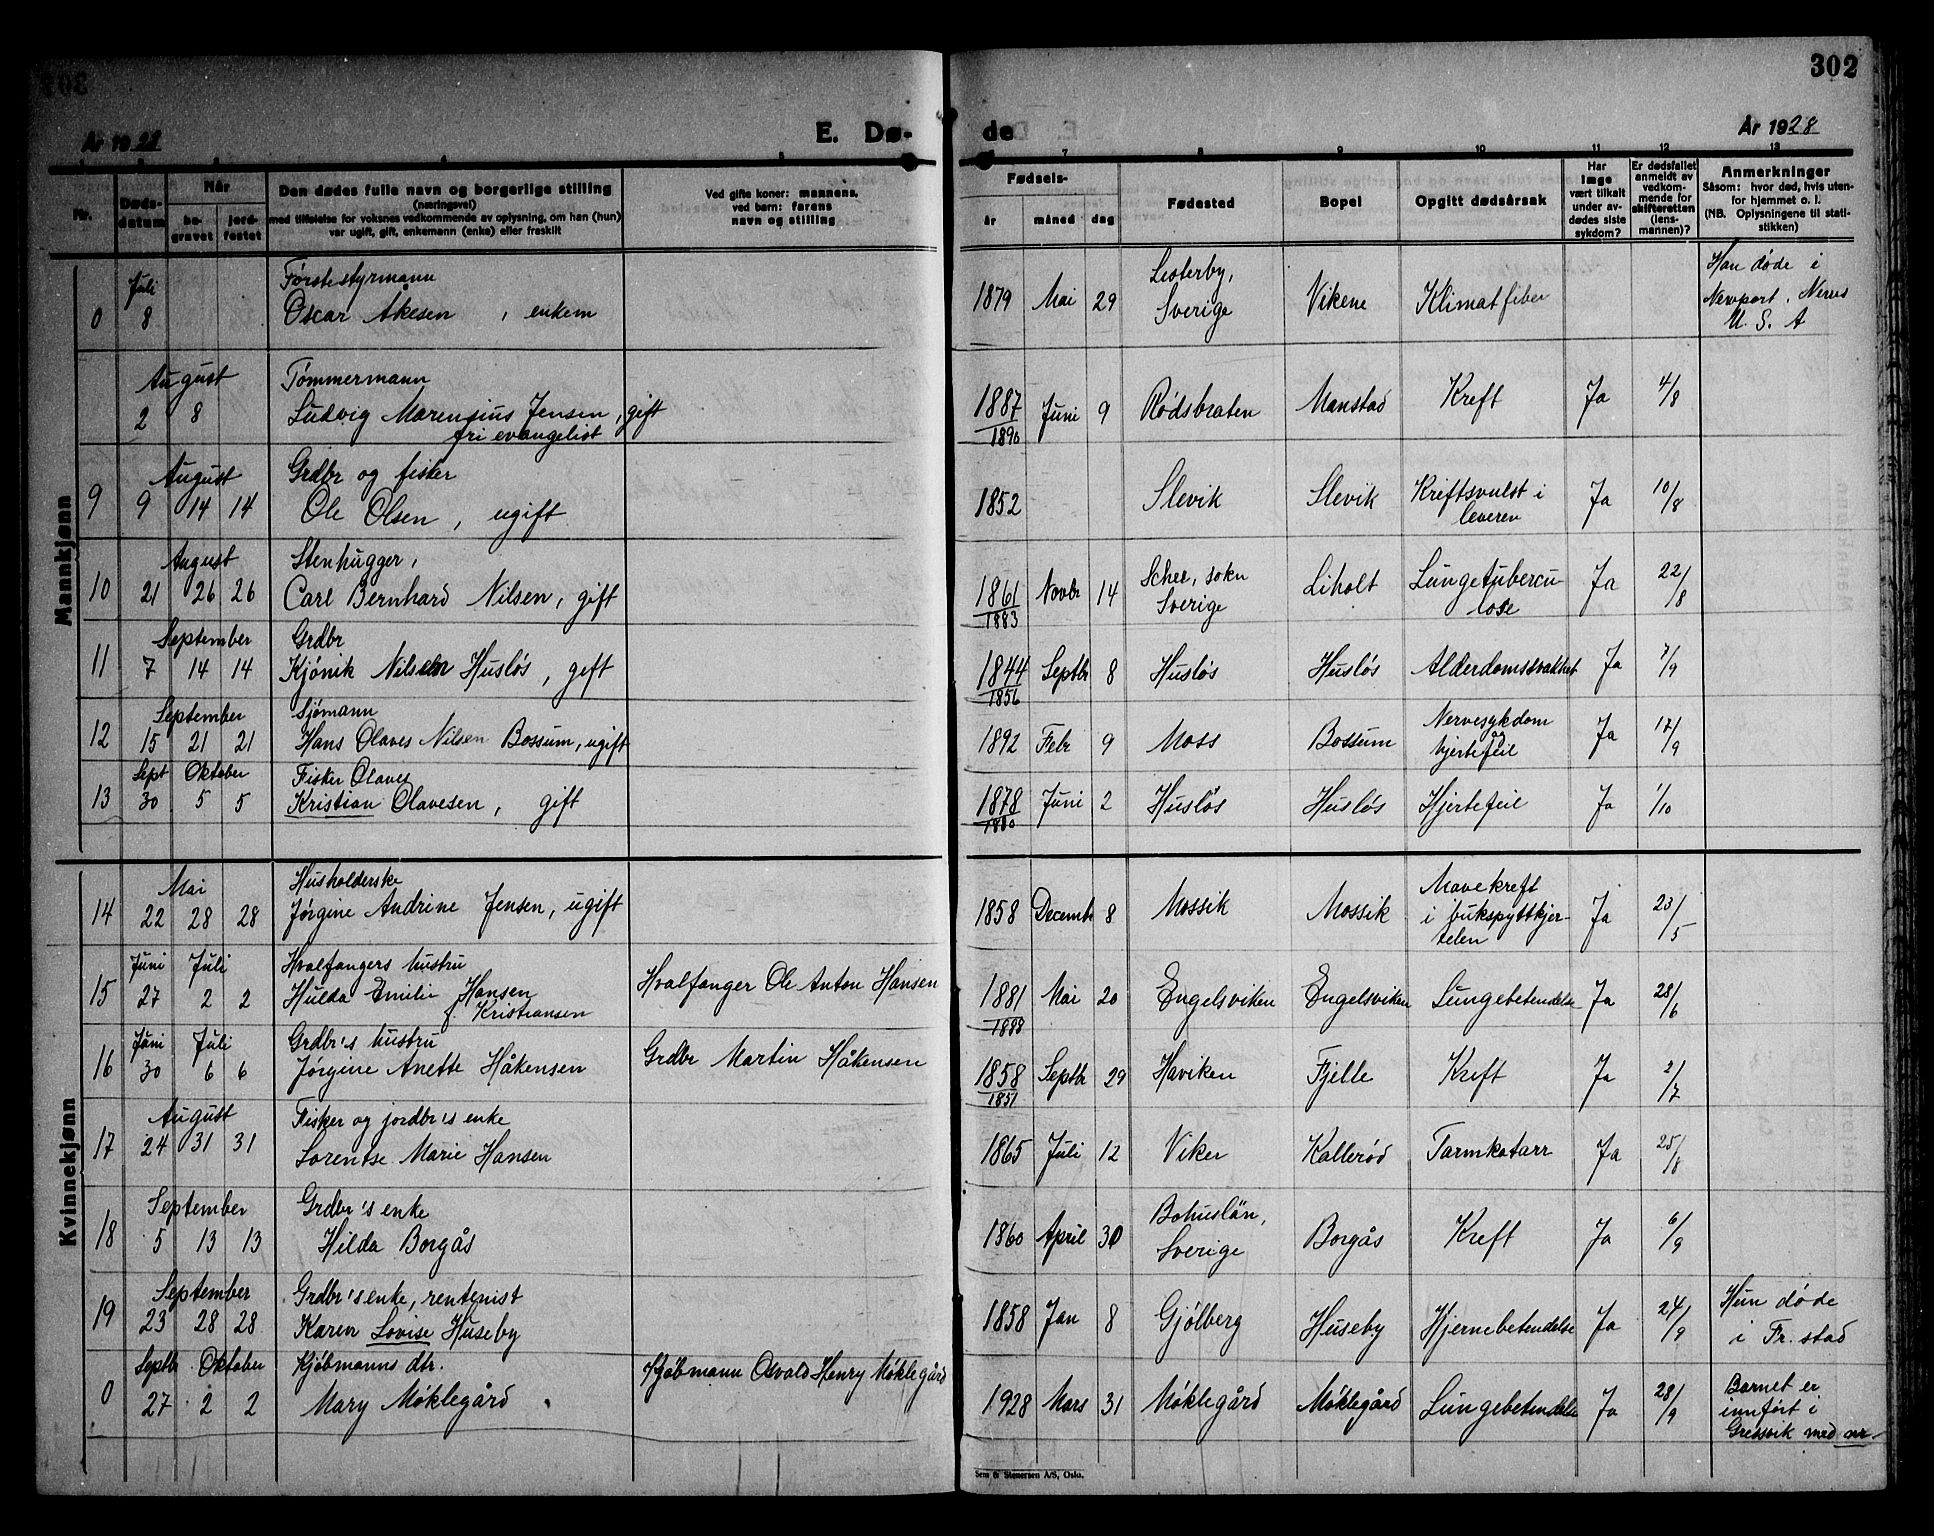 302
År 1928
E. Dø-
de
År 1928
7 8 9 10 11 12 13
Nr.
Døds-
datum
Når
be-
gravet
jord-
festet
Den dødes fulle navn og borgerlige stilling
(næringsvei)
med tilføielse for voksnes vedkommende av oplysning, om han (hun)
var ugift, gift, enkemann (enke) eller fraskilt
Ved gifte koner: mannens,
ved barn: farens
navn og stilling
Fødsels-
år måned dag
Fødested
Bopel
Opgitt dødsårsak
Har
læge
vært tilkalt
under av-
dødes siste
sykdom?
Er dødsfallet
anmeldt av
vedkom-
mende for
skifteretten
(lens-
mannen)?
Anmerkninger
Såsom: hvor død, hvis uten-
for hjemmet o. l.
(NB. Oplysningene til stati-
stikken)
Mannkjønn
Juli Førstestyrmann
0 8 Oscar Åkesen, enkem
1879 Mai 29
Sverige
Vikene Klimatfiber
Han døde i
Newport. News
U. S. A
August Tømmermann
2 8 Ludvig Marensius Jensen, gift
fri evangelist
1887 Juni 9 Rødsbraten Manstad Kreft Ja 4/8
1890
August Grdbr og fisker
9 9 14 14 Ole Olsen, ugift
1852 Slevik Slevik Kreftsvulst i
leveren
Ja 10/8
August Stenhugger,
10 21 26 26 Carl Bernhard Nilsen, gift
1861 Novbr 14 Schee, sokn
Sverige
Liholt Lungetubercu
lose
Ja 22/8
1883
September Grdbr
11 7 14 14 Kjønik Nilsen Husløs, gift
1844 Septbr 8 Husløs Husløs Alderdomssvakhet Ja 7/9
1856
September Sjømann
12 15 21 21 Hans Olaves Nilsen Bossum, ugift
1892 Febr 9 Moss Bossum Nervesykdom
og
hjertefeil
Ja 17/9
Sept Oktober Fisker Olaves
13 30 5 5 Kristian Olavesen, gift
1878 Juni 2 Husløs Husløs Hjertefeil Ja 1/10
1880
Kvinnekjønn
Mai Husholderske
14 22 28 28 Jørgine Andrine Jensen, ugift
1858 Decembr 8 Mossik Mossik Mavekreft
i bukspyttkjer-
telen
Ja 23/5
Juni Juli Hvalfangers hustru
15 27 2 2 Hulda Emilie Hansen
f. Kristiansen
Hvalfanger Ole Anton Hansen
1881 Mai 20 Engelsviken Engelsviken Lungebetendelse Ja 28/6
1888
Juni Juli Grdbr's hustru
16 30 6 6 Jørgine Anette Håkensen
Grdbr Martin Håkensen
1858 Septbr 29 Haviken Fjelle Kreft Ja 2/7
1851
August Fisker og jordbr's enke
17 24 31 31 Lorentse Marie Hansen
1865 Juli 12 Viker Kallerød Tarmkatarr Ja 25/8
September Grdbr's enke
18 5 13 13 Hilda Borgås
1860 April 30 Bohuslän,
Sverige
Borgås Kreft Ja 6/9
September Grdbr's enke, rentenist
19 23 28 28 Karen Lovise Huseby
1858 Jan 8 Gjølberg Huseby Hjernebetendelse Ja 24/9
Hun døde
i Fr.stad
Septbr Oktober Kjøbmanns dtr.
0 27 2 2 Mary Møklegård
Kjøbmann Osvald Henry Møklegård
1928 Mars 31 Møklegård Møklegård Lungebetendelse Ja 28/9
Barnet er
innført i
Gressvik med nr
Sem & Stenersen A/S, Oslo.